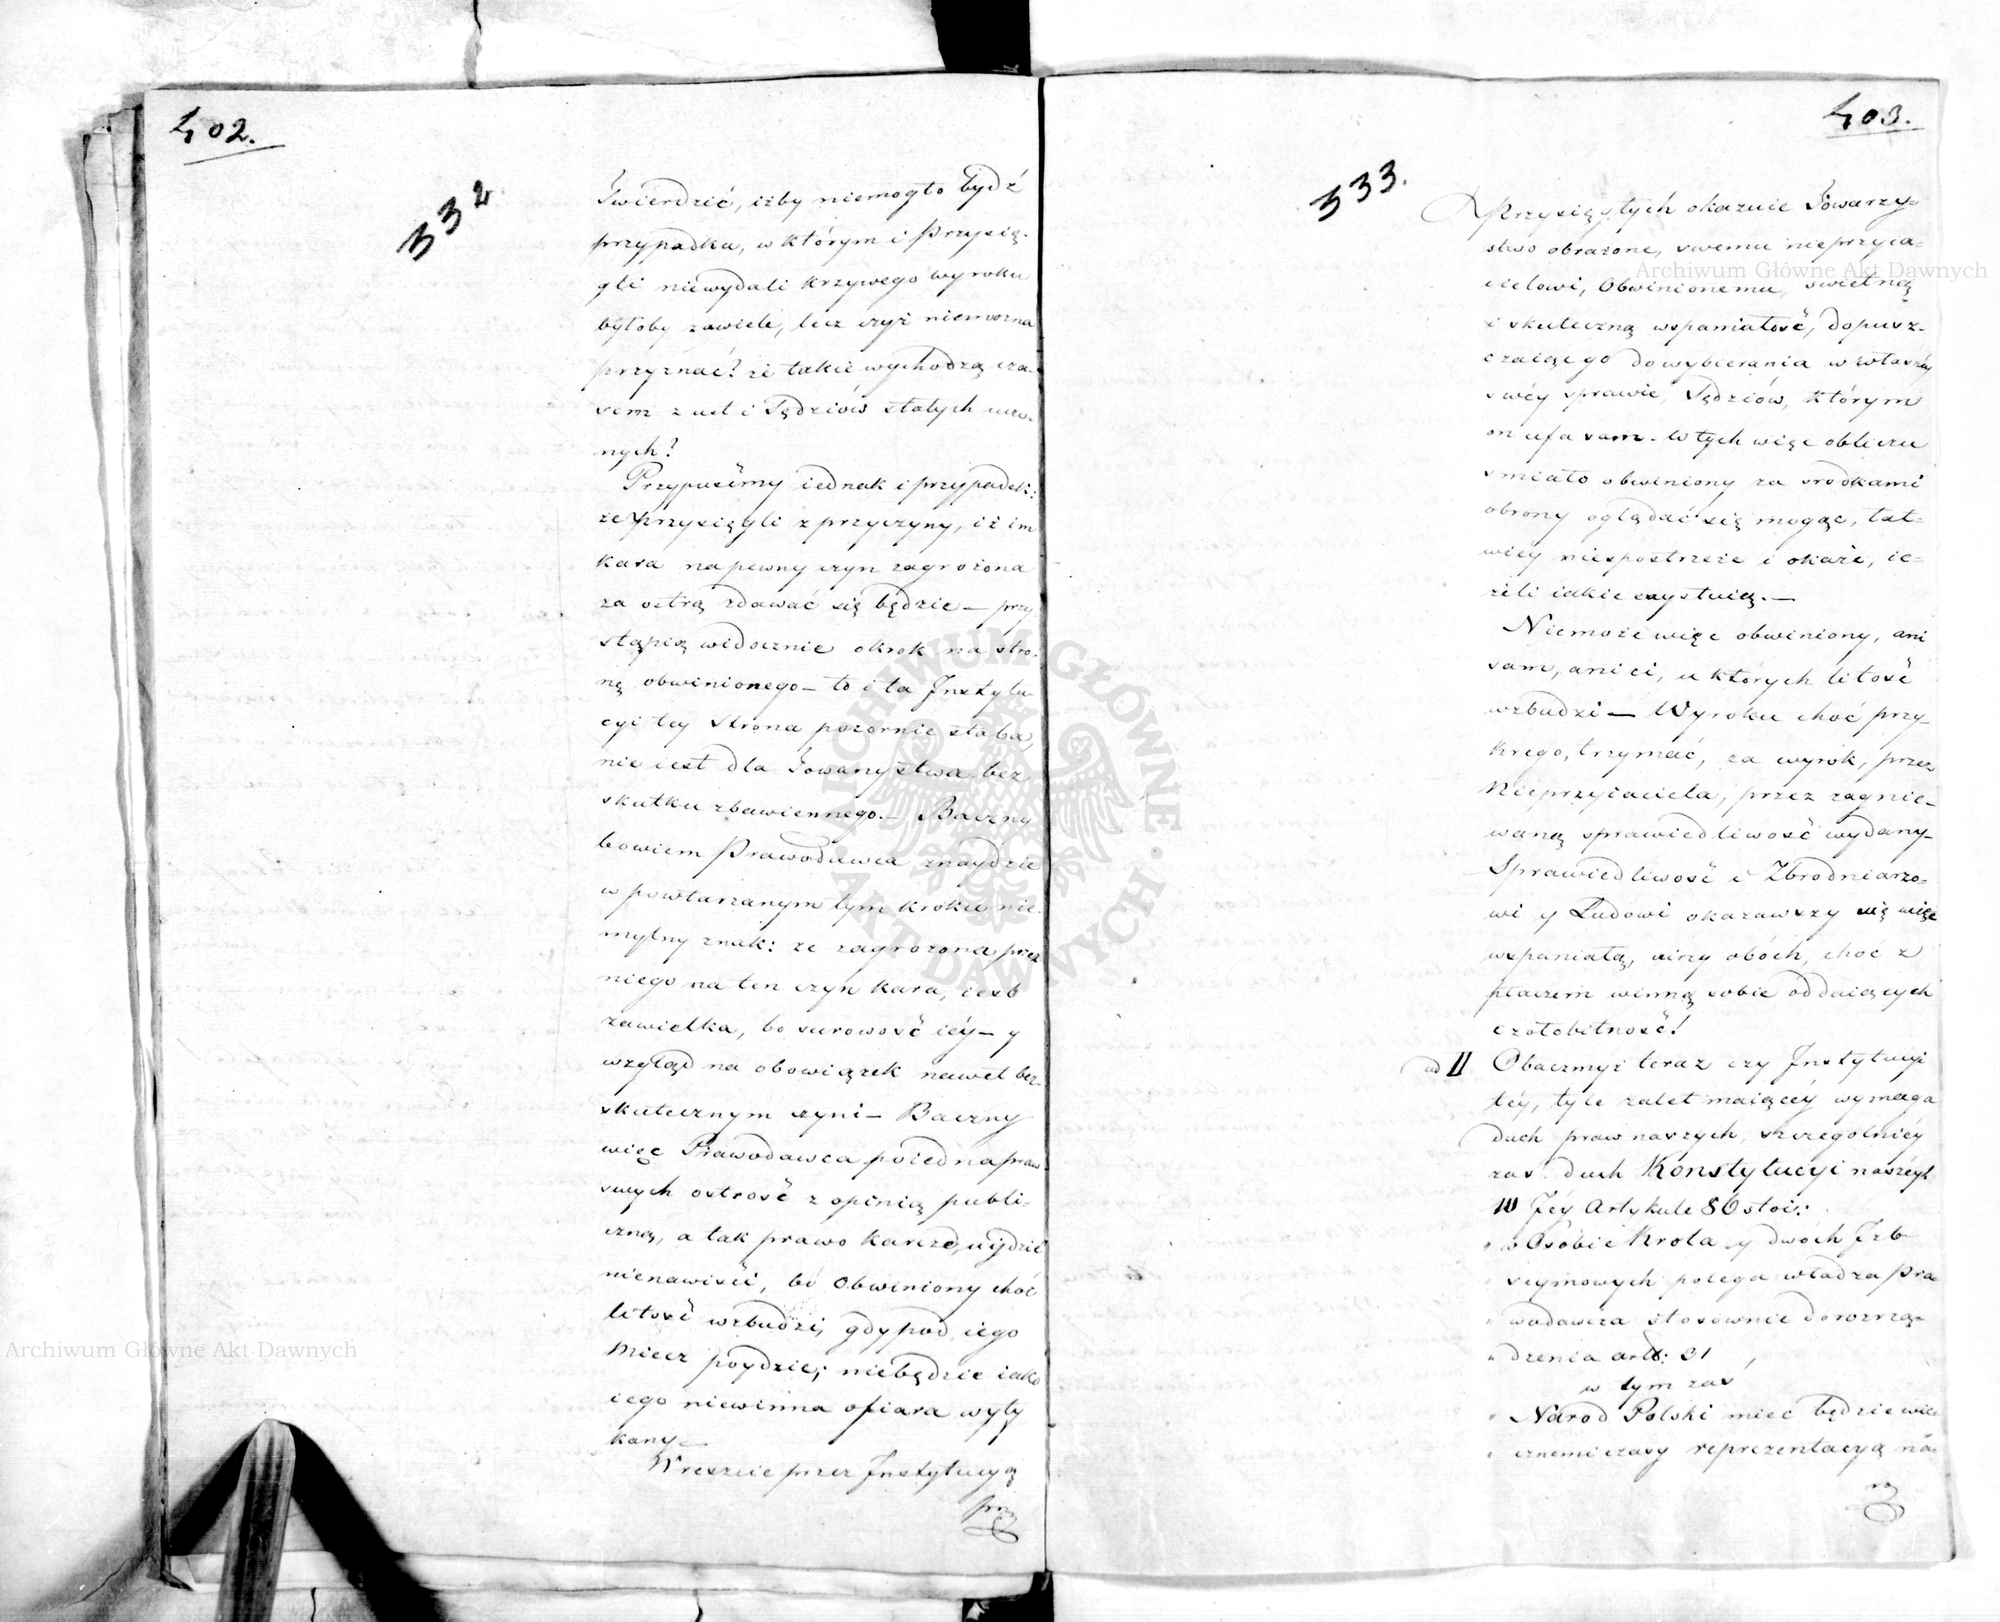 402.
332
Twierdzić, iżby niemogło bydź
przypadku, w którym i Przysię-
gli niewydali krzywego wyroku
byłoby zawiele, lecz czyż niemożna
przyznać? że takie wychodzą cza-
sem z ust i Sędziów stałych uczo-
nych?
Przypuśćmy iednak i przypadek:
że przysięgli z przyczyny, iż im
kara na pewny czyn zagrożona
za ostrą zdawać się będzie — przy
stąpią widocznie okrok na stro-
nę obwinionego — to i ta Instytu-
cyi tey Strona pozornie słaba,
nie iest dla Towarzystwa bez
skutku zbawiennego. — Baczny
bowiem Prawodawca znaydzie
w powtarzanym tym kroku nie-
mylny znak: że zagrożona przez
niego na ten czyn kara, iest
zawielka, bo surowość iéy — y
wzgląd na obowiązek nawet bez-
skutecznym czyni — Baczny
więc Prawodawca poiedna praw
swych ostrość z opinią publi-
czną, a tak prawo karzące, uydzie
nienawiści, bo Obwiniony choć
litość wzbudzi, gdy pod iego
miecz poydzie; niebędzie iako
iego niewinna ofiara wyty
kany —
Wreszcie przez Instytucyą
prz
403.
333.
Przysięgłych okazuie Towarzy-
stwo obrażone, swemu nieprzyia-
cielowi, Obwinionemu, świetną
i skuteczną wspaniałość, dopusz-
czaiąc go do wybierania w własnéy
swéy sprawie, Sędziów, którym
on ufa sam. W tych więc obliczu
śmiało obwiniony za srodkami
obrony oglądać się mogąc, łat-
wiéy niespostrzeże i okaże, ie-
żeli iakie exystuią. —
Niemoże więc obwiniony, ani
sam, ani ci, u których litość
wzbudzi — Wyroku choć przy-
krego, trzymać, za wyrok, przez
Nieprzyiaciela, przez zagnie-
waną sprawiedliwość wydany —
Sprawiedliwość i Zbrodniarzo-
wi y Ludowi okazawszy się więc
wspaniałą, uirzy obóch, choć z
płaczem winną sobie oddaiących
czołobitność!
ad II Obaczmyż teraz czy Instytucyi
téy, tyle zalet maiącéy wymaga
duch praw naszych, szczególniéy
zaś duch Konstytucyi naszéy!
W Jéy Artykule 86 stoi:
" w Osobie Króla y dwóch Izb
" seymowych polega władza Pra
" wodawcza stosownie do rozrzą-
" dzenia art: 31
w tym zaś
" Naród Polski mieć będzie wie-
" cznemi czasy reprezentacyą na-
ro
Archiwum Główne Akt Dawnych
Archiwum Główne Akt Dawnych
ARCHIWUM GŁÓWNE · AKT DAWNYCH ·